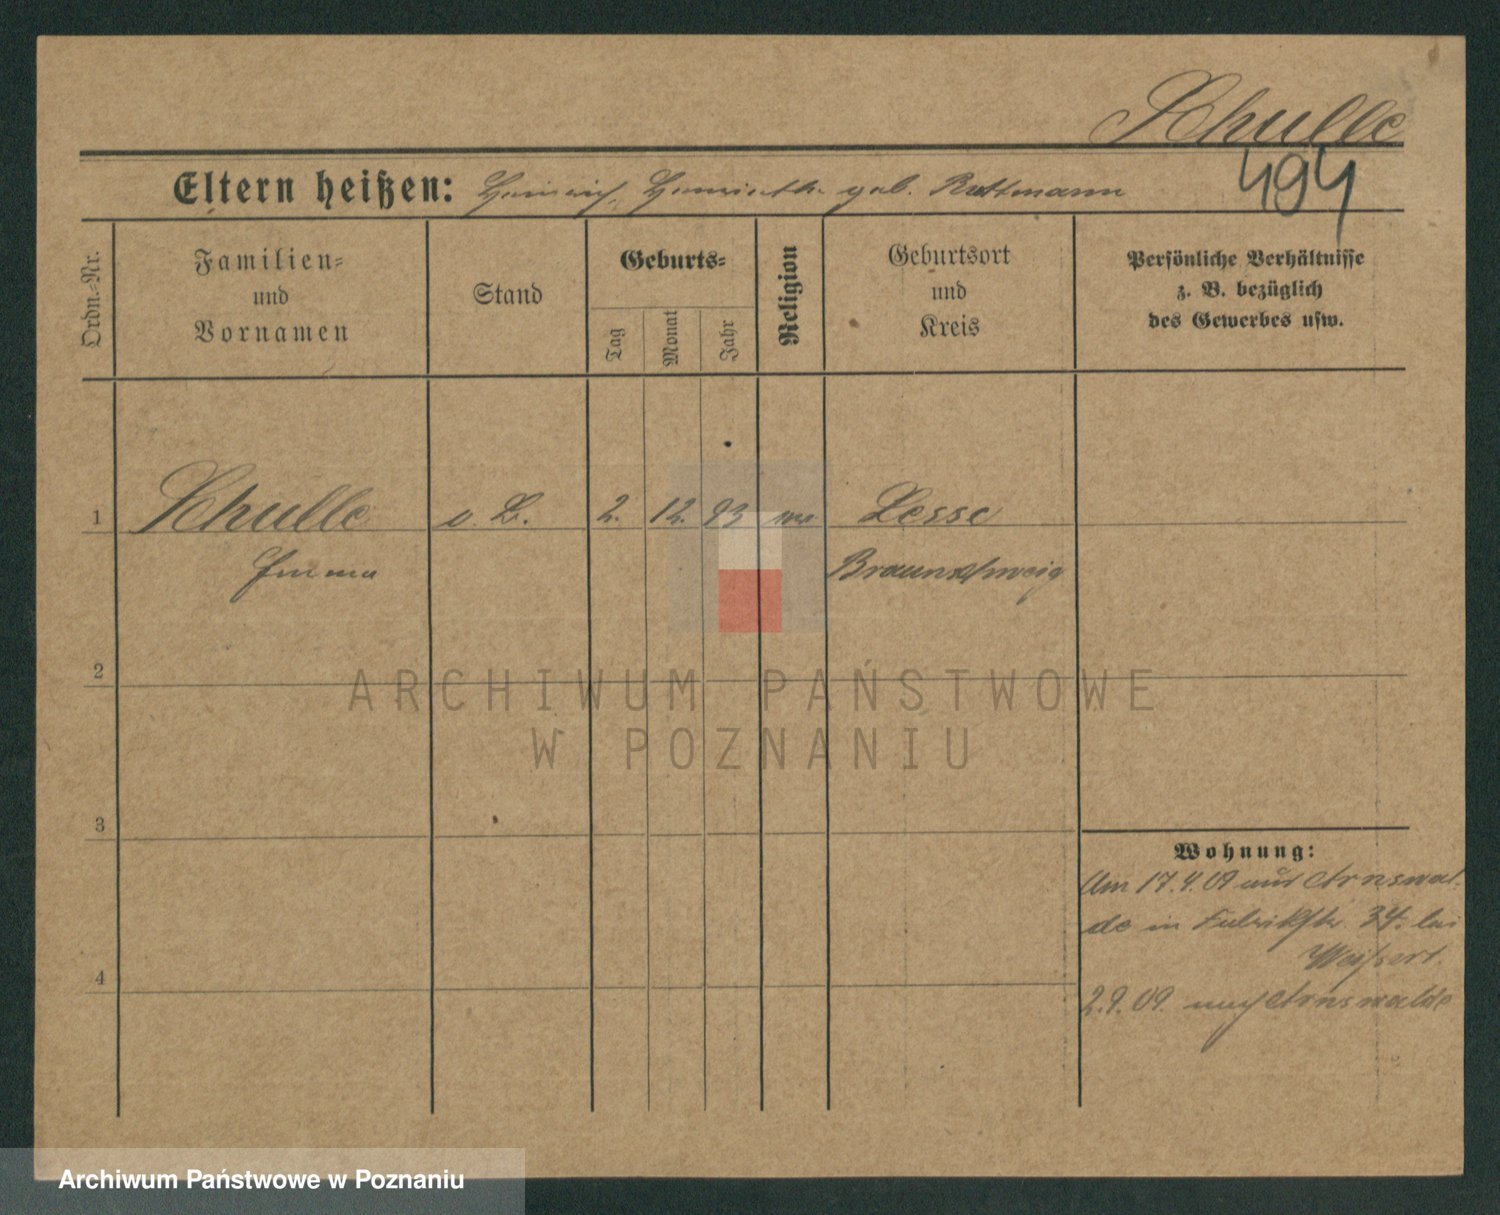 Schulle
494
Eltern heißen: Heinrich, Henriette geb. Rottmann
Ordn.-Nr.
Familien-
und
Vornamen
Stand
Geburts-
Tag
Monat
Jahr
Religion
Geburtsort
und
Kreis
Persönliche Verhältnisse
z. B. bezüglich
des Gewerbes usw.
1 Schulle o. B. 2. 12. 93 Lesse
Emma Braunschweig
2
3
4
Wohnung:
Am 17.4.09 aus Arnswal-
de in Fabrikstr. 34. bei
Weissert.
2.9.09. nach Arnswalde
ARCHIWUM PAŃSTWOWE
W POZNANIU
Archiwum Państwowe w Poznaniu